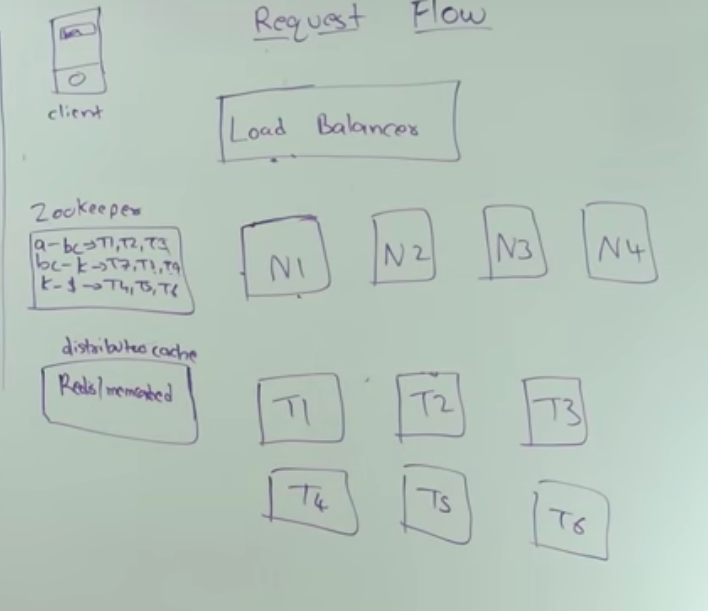 Request Flow
client
Load Balancer
Zookeeper
a-bc→T1,T2,T3
bc-k→T7,T1,T9
k-$→T4,T5,T6
N1 N2 N3 N4
distributed cache
Redis/memcached
T1 T2 T3
T4 T5 T6